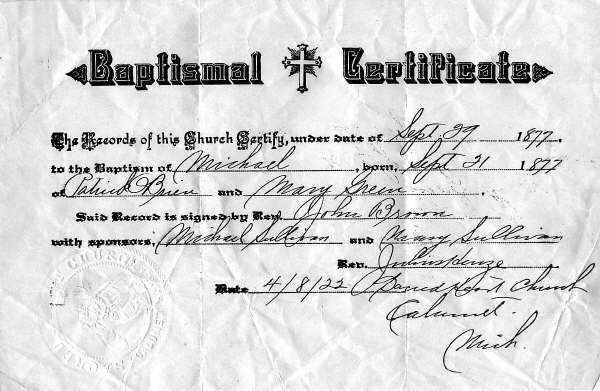 Baptismal Certificate
The Records of this Church Certify, under date of Sept. 29 1877.
to the Baptism of Michael, born, Sept 21 1877
of Patrick O'Brien and Mary Green.
Said Record is signed by Rev. John Brown
with sponsors, Michael Sullivan and Mary Sullivan
Rev. Julius
Date 4/8/22 Sacred Heart Church
Calumet.
Mich.